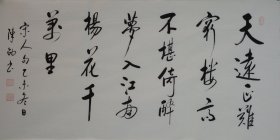 天遠正難
窮樓高
不堪倚醉
夢入江南
楊花千
萬里
宋人句乙未冬日